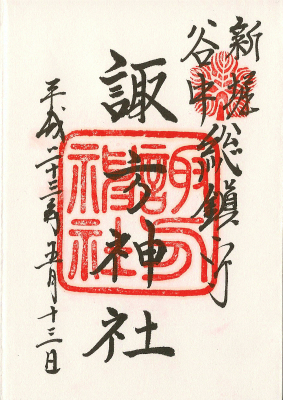 新堀
谷中
総鎮守
諏方神社
平成二十三年五月十三日
諏方
神社